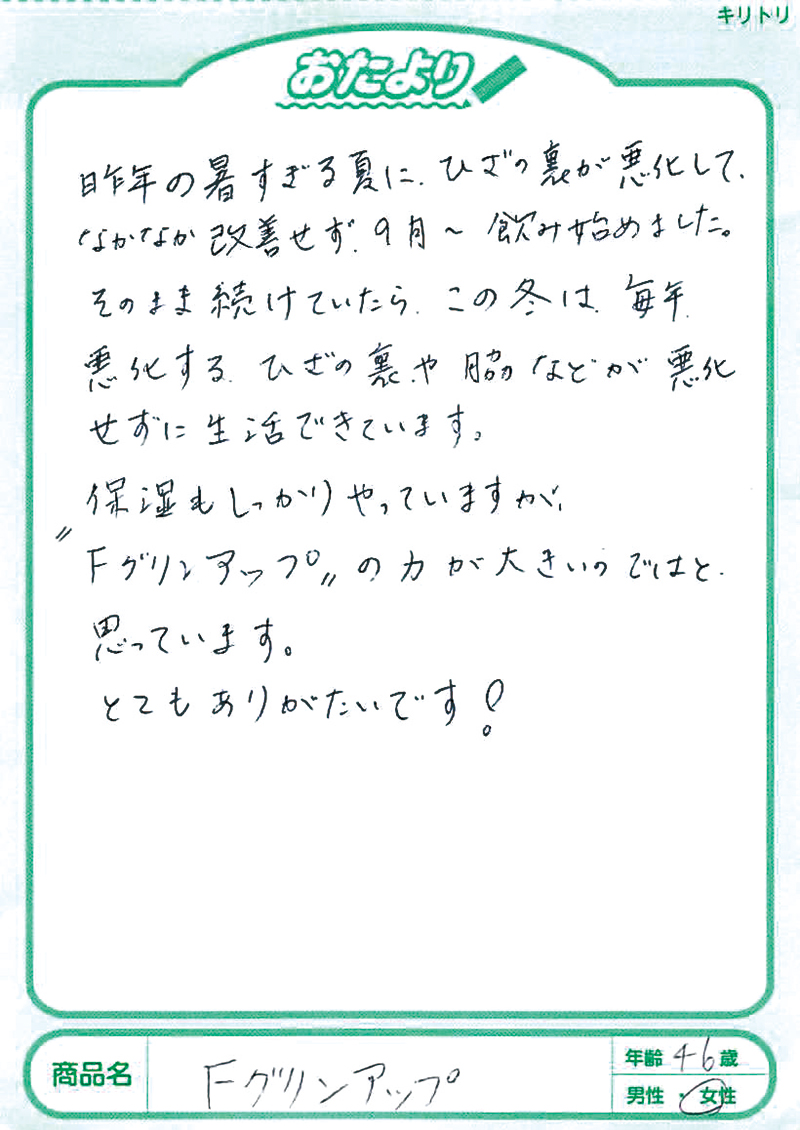 キリトリ
おたより
昨年の暑すぎる夏に、ひざの裏が悪化して、
なかなか改善せず、9月〜飲み始めました。
そのまま続けていたら、この冬は、毎年
悪化する、ひざの裏や脇などが悪化
せずに生活できています。
保湿もしっかりやっていますが、
〝Fグリンアップ〟の力が大きいのではと、
思っています。
とてもありがたいです！
商品名 Fグリンアップ 年齢 46歳
男性・女性